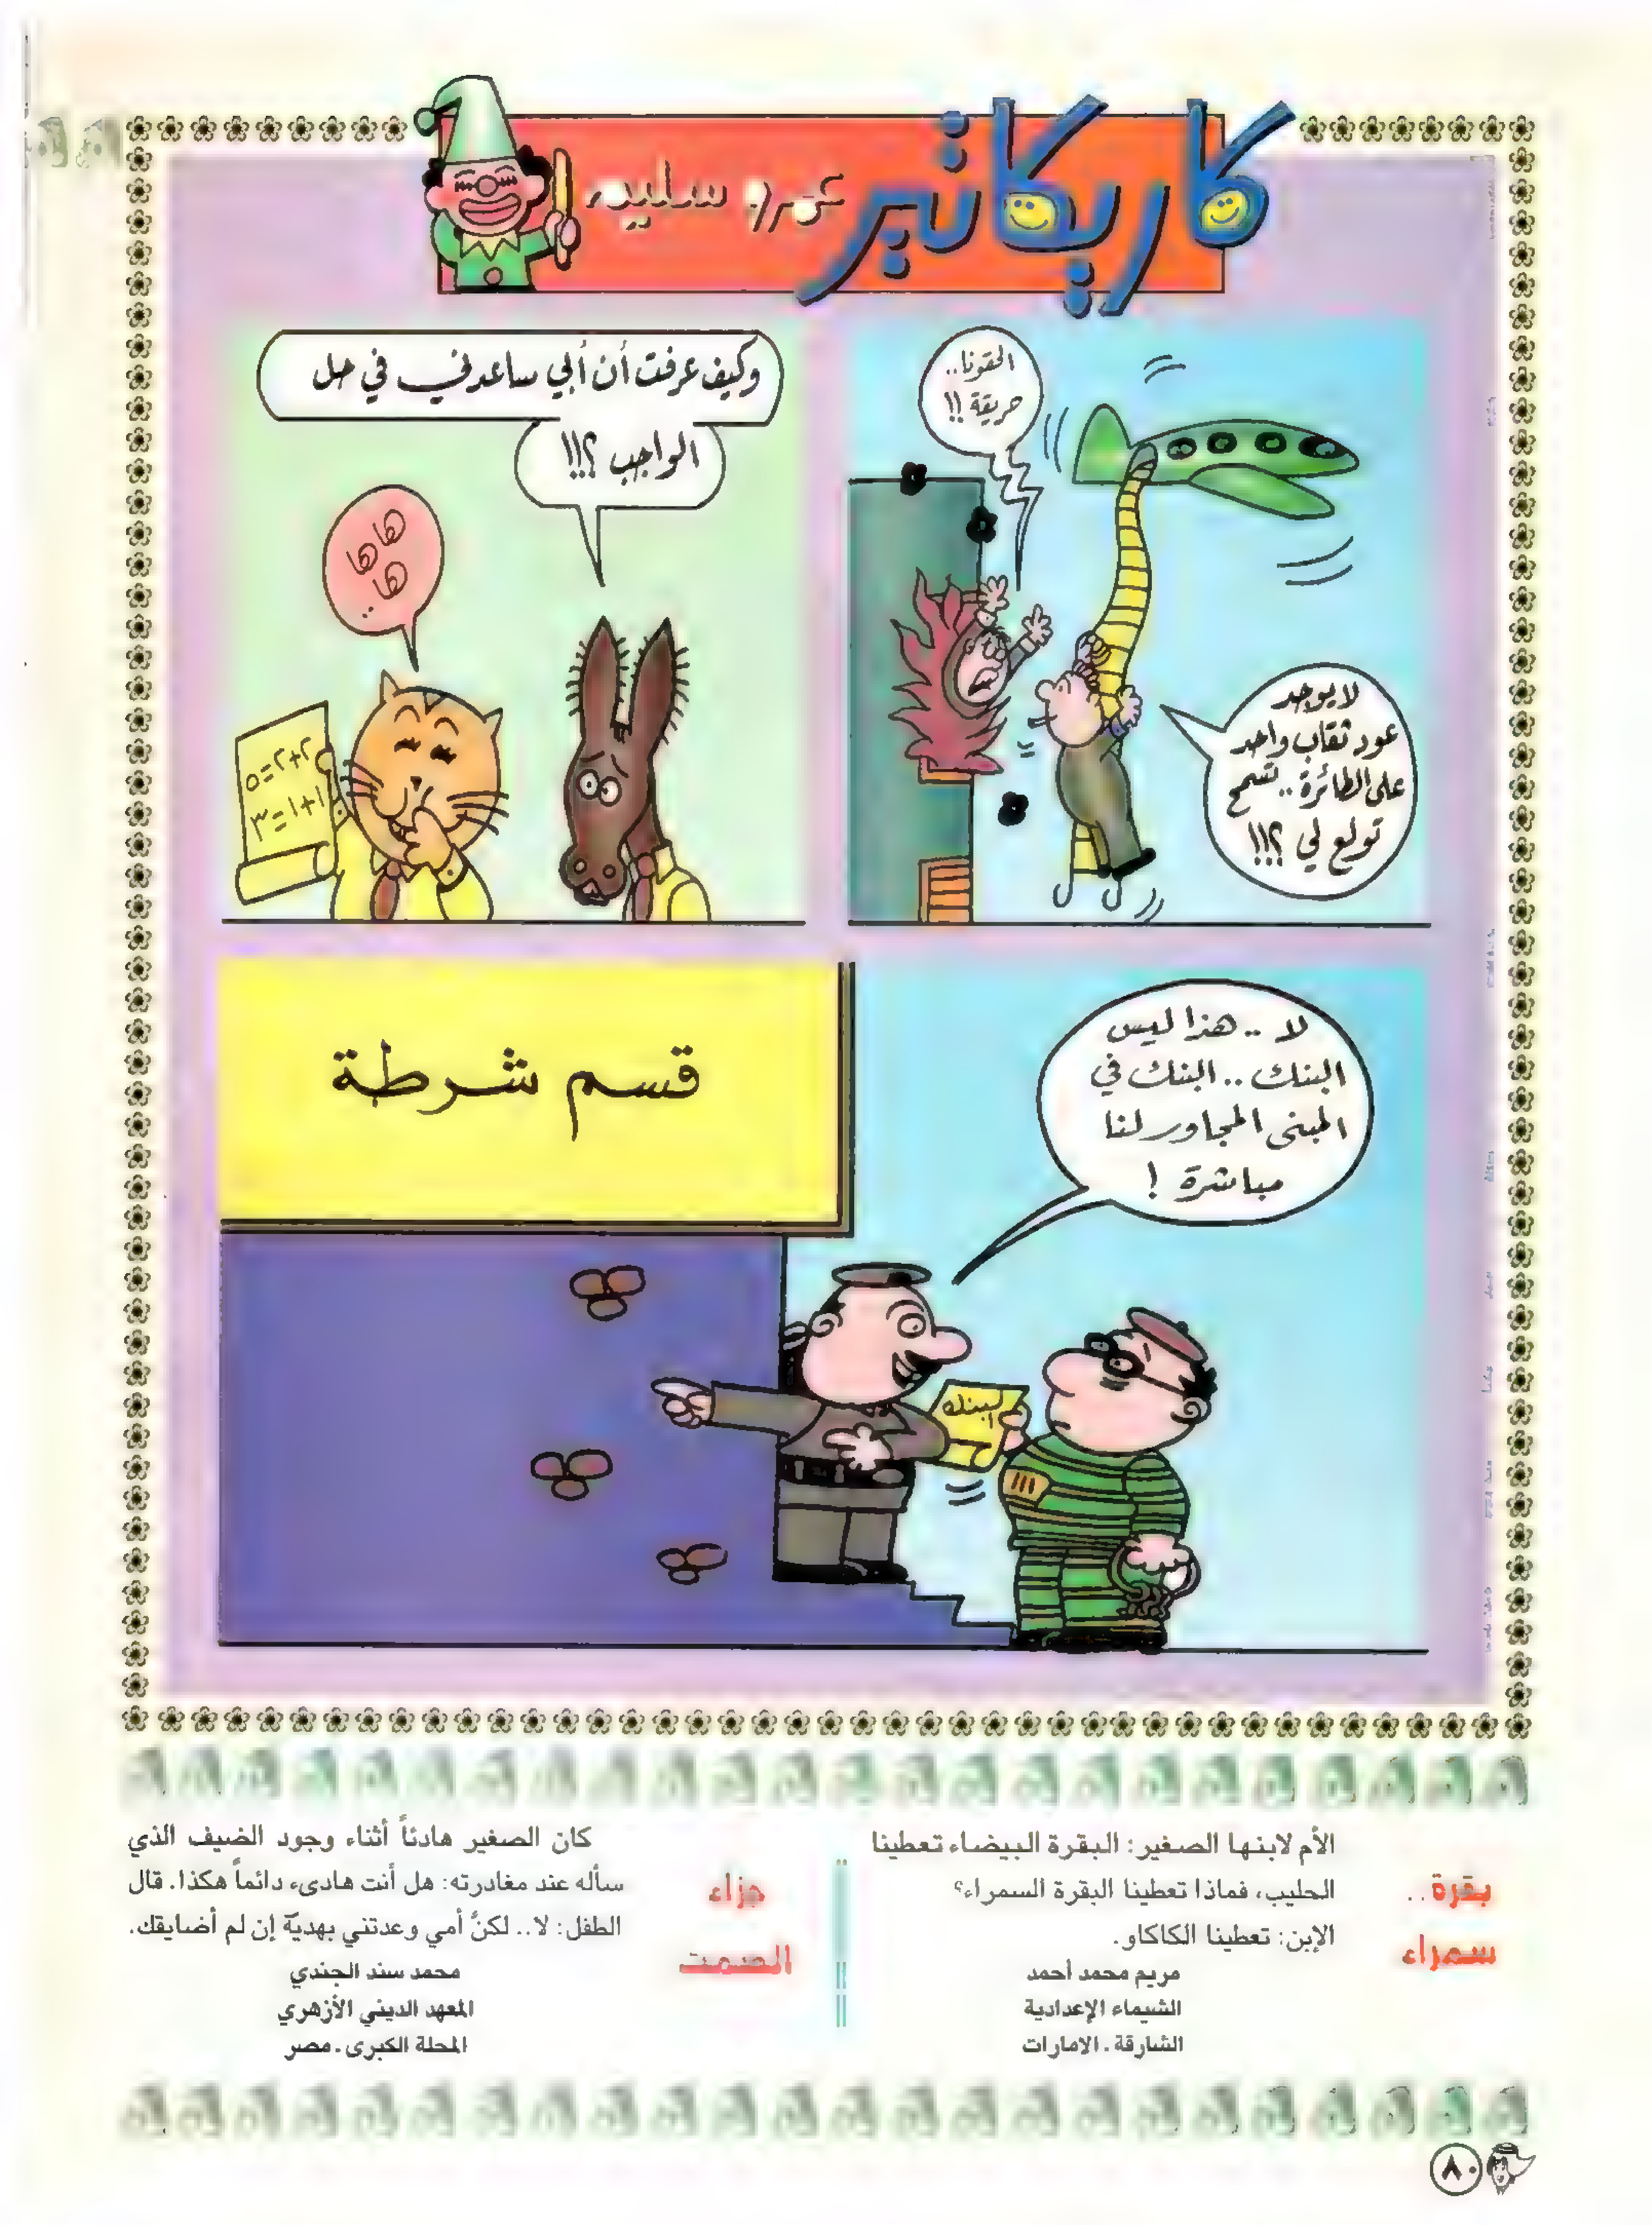 كاريكاتير
عمرو سليم
الحقونا..
حريقة !!
لا يوجد
عود ثقاب واحد
على الطائرة .. تسمح
تولع لي ؟!!!
وكيف عرفت أن أبي ساعدني في حل
الواجب ؟!!!
هاها
ها..
٢+٢=٥
١+١=٣
لا .. هذا ليس
البنك .. البنك في
المبنى المجاور لنا
مباشرة !
قسم شرطة
البنك
بقرة..
سمراء
الأم لابنها الصغير: البقرة البيضاء تعطينا
الحليب، فماذا تعطينا البقرة السمراء؟
الإبن: تعطينا الكاكاو.
مريم محمد أحمد
الشيماء الإعدادية
الشارقة . الامارات
جزاء
الصمت
كان الصغير هادئاً أثناء وجود الضيف الذي
سأله عند مغادرته: هل أنت هادىء دائماً هكذا. قال
الطفل: لا.. لكنُ أمي وعدتني بهديّة إن لم أضايقك.
محمد سند الجندي
المعهد الديني الأزهري
المحلة الكبرى . مصر
٨٠